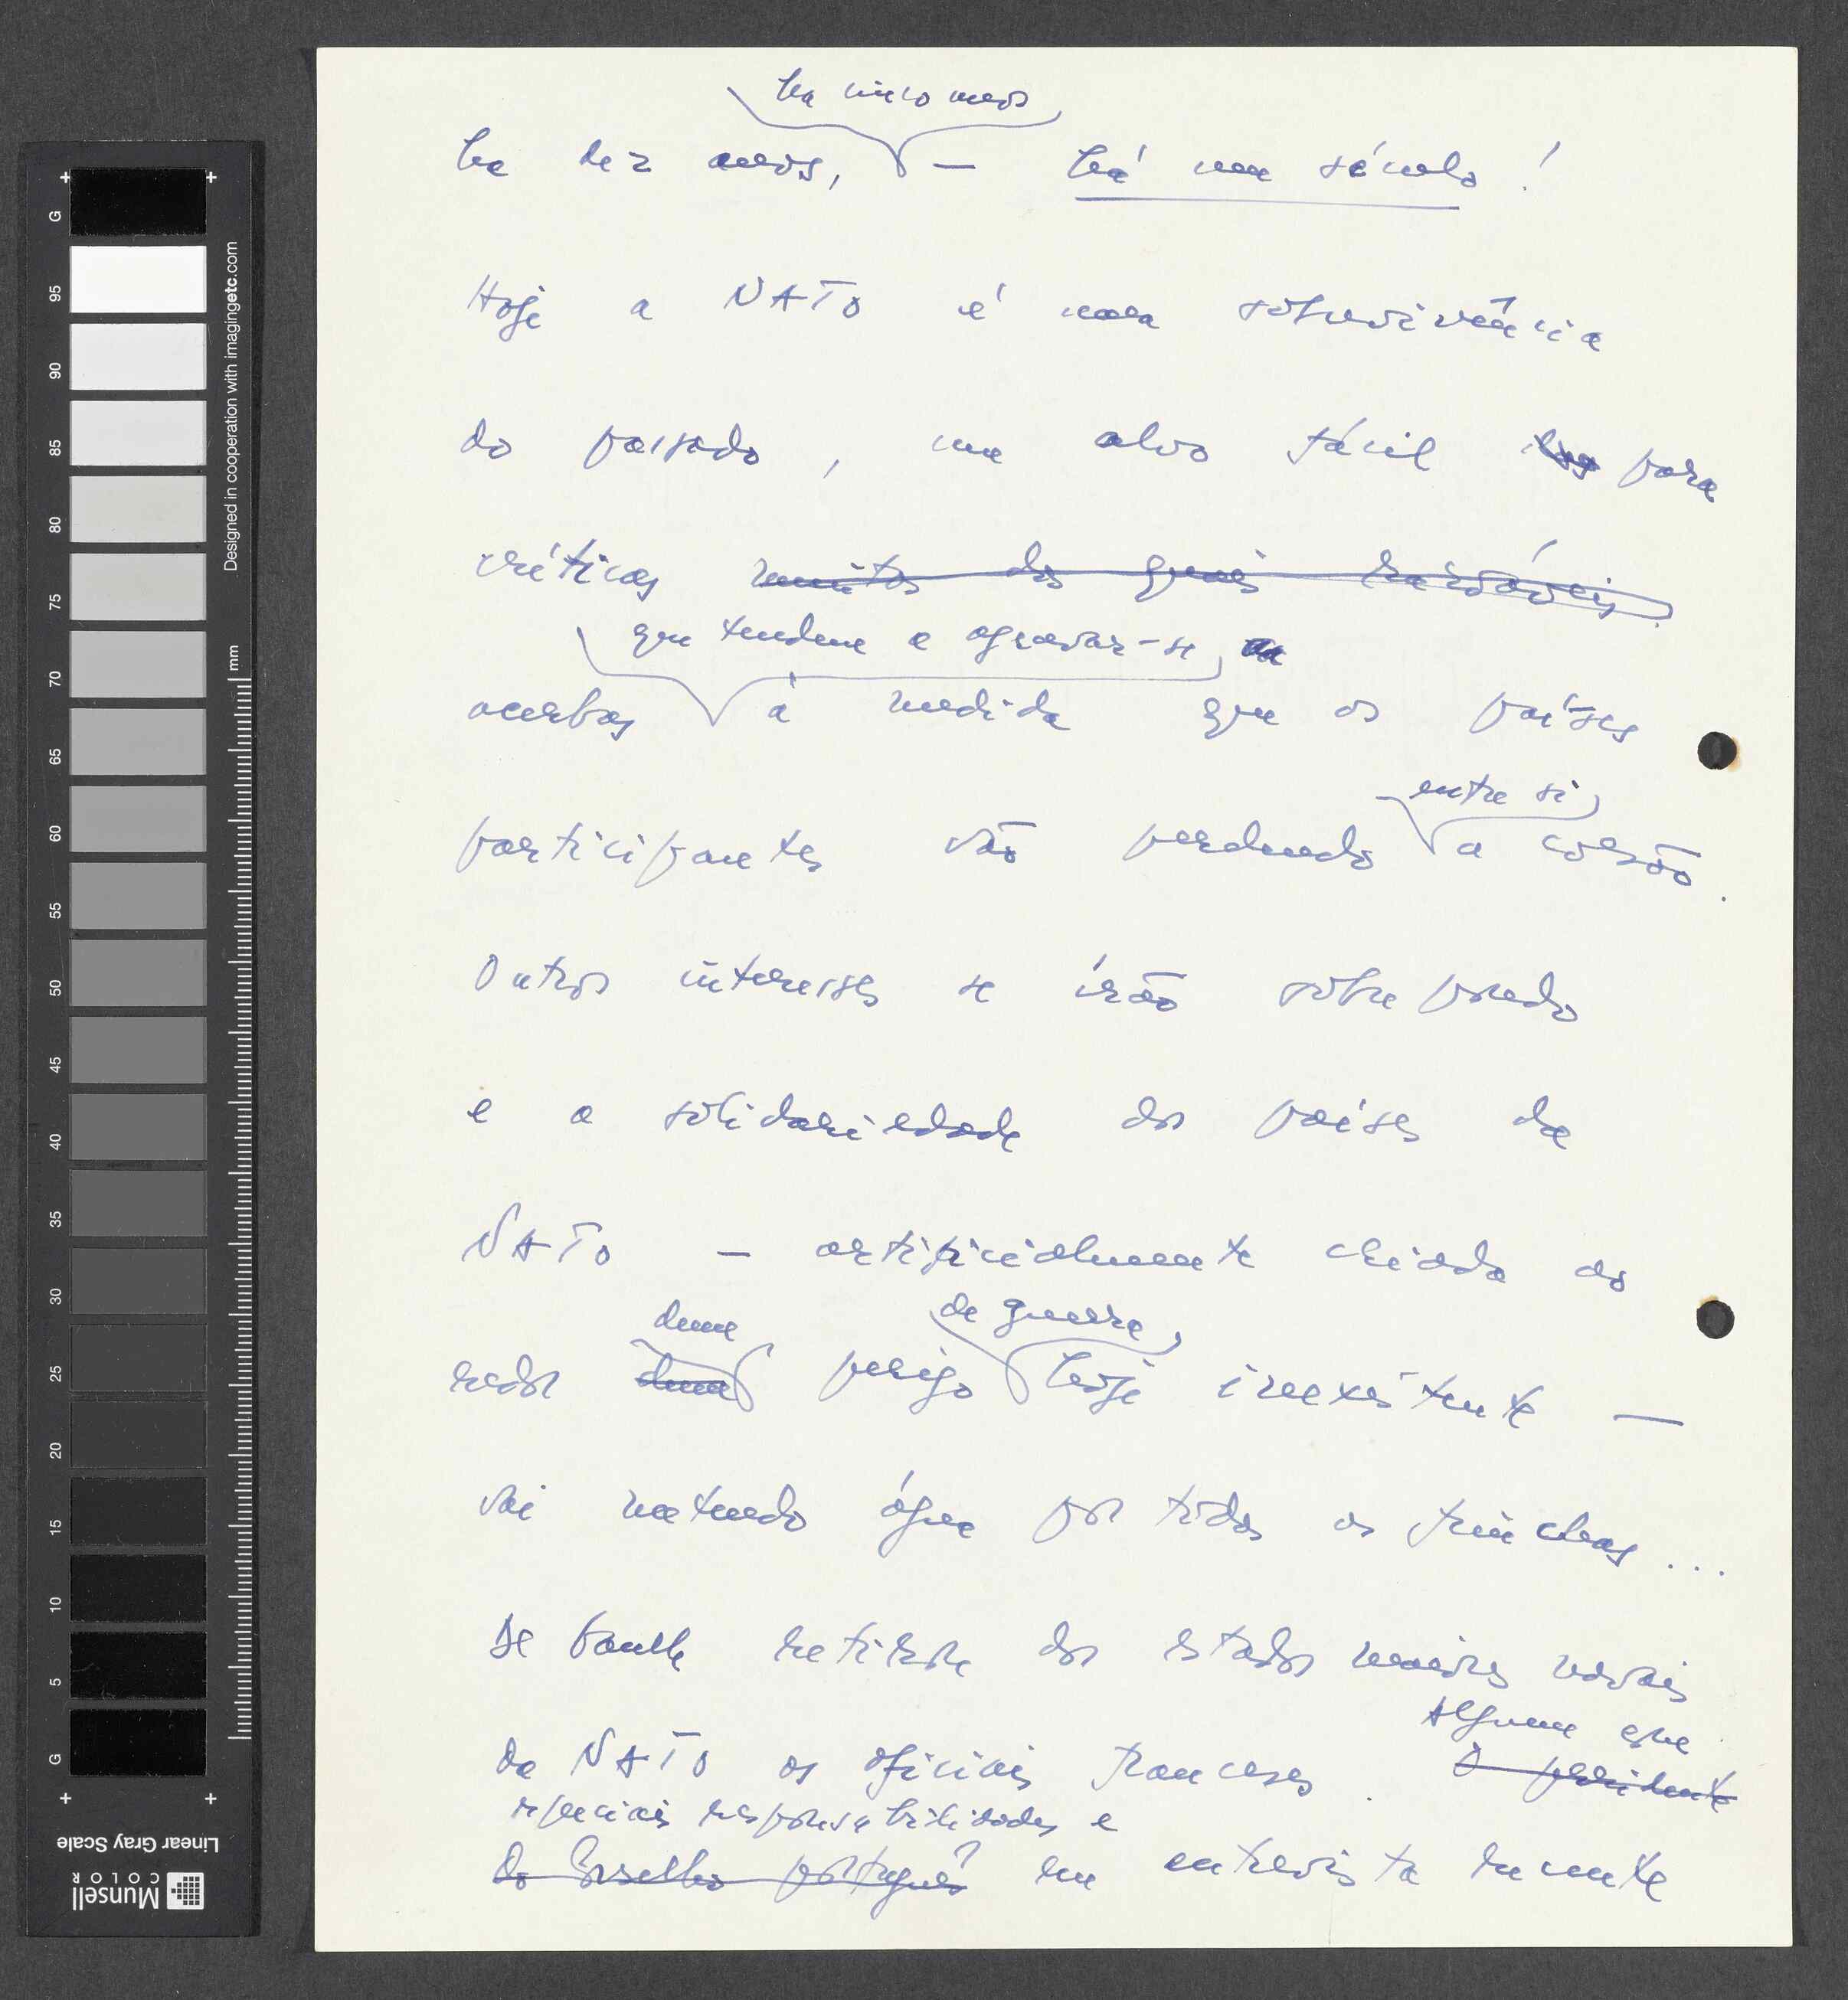 há cinco anos
há dez anos, — há um século!
Hoje a NATO é uma sobrevivência
do passado, um alvo fácil para
críticas muitas das quais razoáveis.
que tendem a agravar-se,
acerbas à medida que os países
entre si
participantes vão perdendo a coesão.
Outros interesses se irão sobrepondo
e a solidariedade dos países da
NATO — artificialmente criada ao
dum de guerra,
redor dum perigo hoje inexistente —
vai metendo água por todas as frinchas...
De Gaulle retirou dos estados maiores navais
Alguém que
da NATO os oficiais franceses. O presidente
especiais responsabilidades e
do Conselho português em entrevista recente
G 95 90 85 80 75 70 65 60 55 50 45 40 35 30 25 20 15 10 5 G
mm
Designed in cooperation with imagingetc.com
Linear Gray Scale
Munsell
COLOR